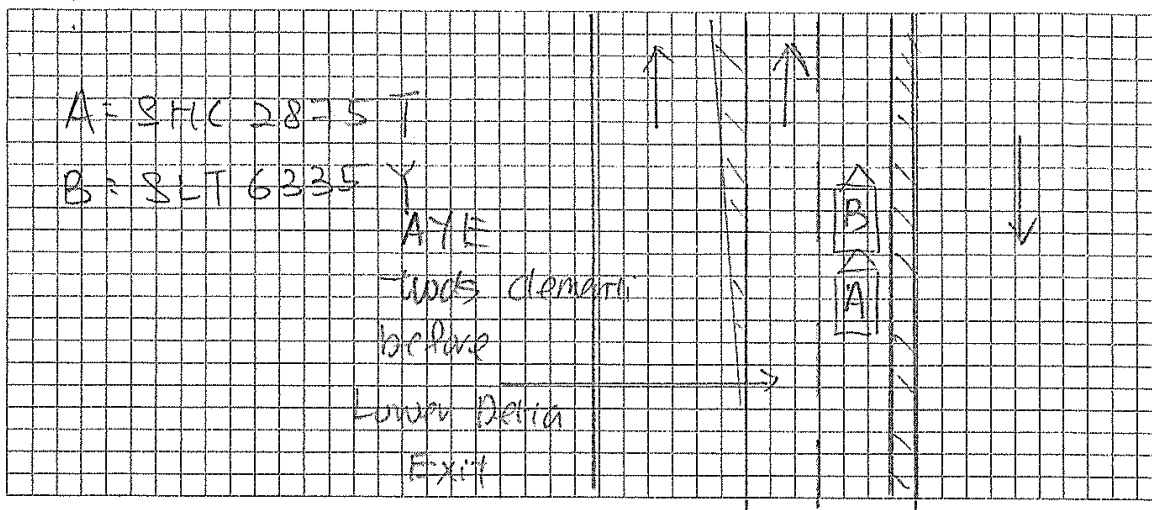 A = SHC 2875 T
B = SLT 6335 Y
AYE
twds clementi
before
Lower Delta
Exit
B
A